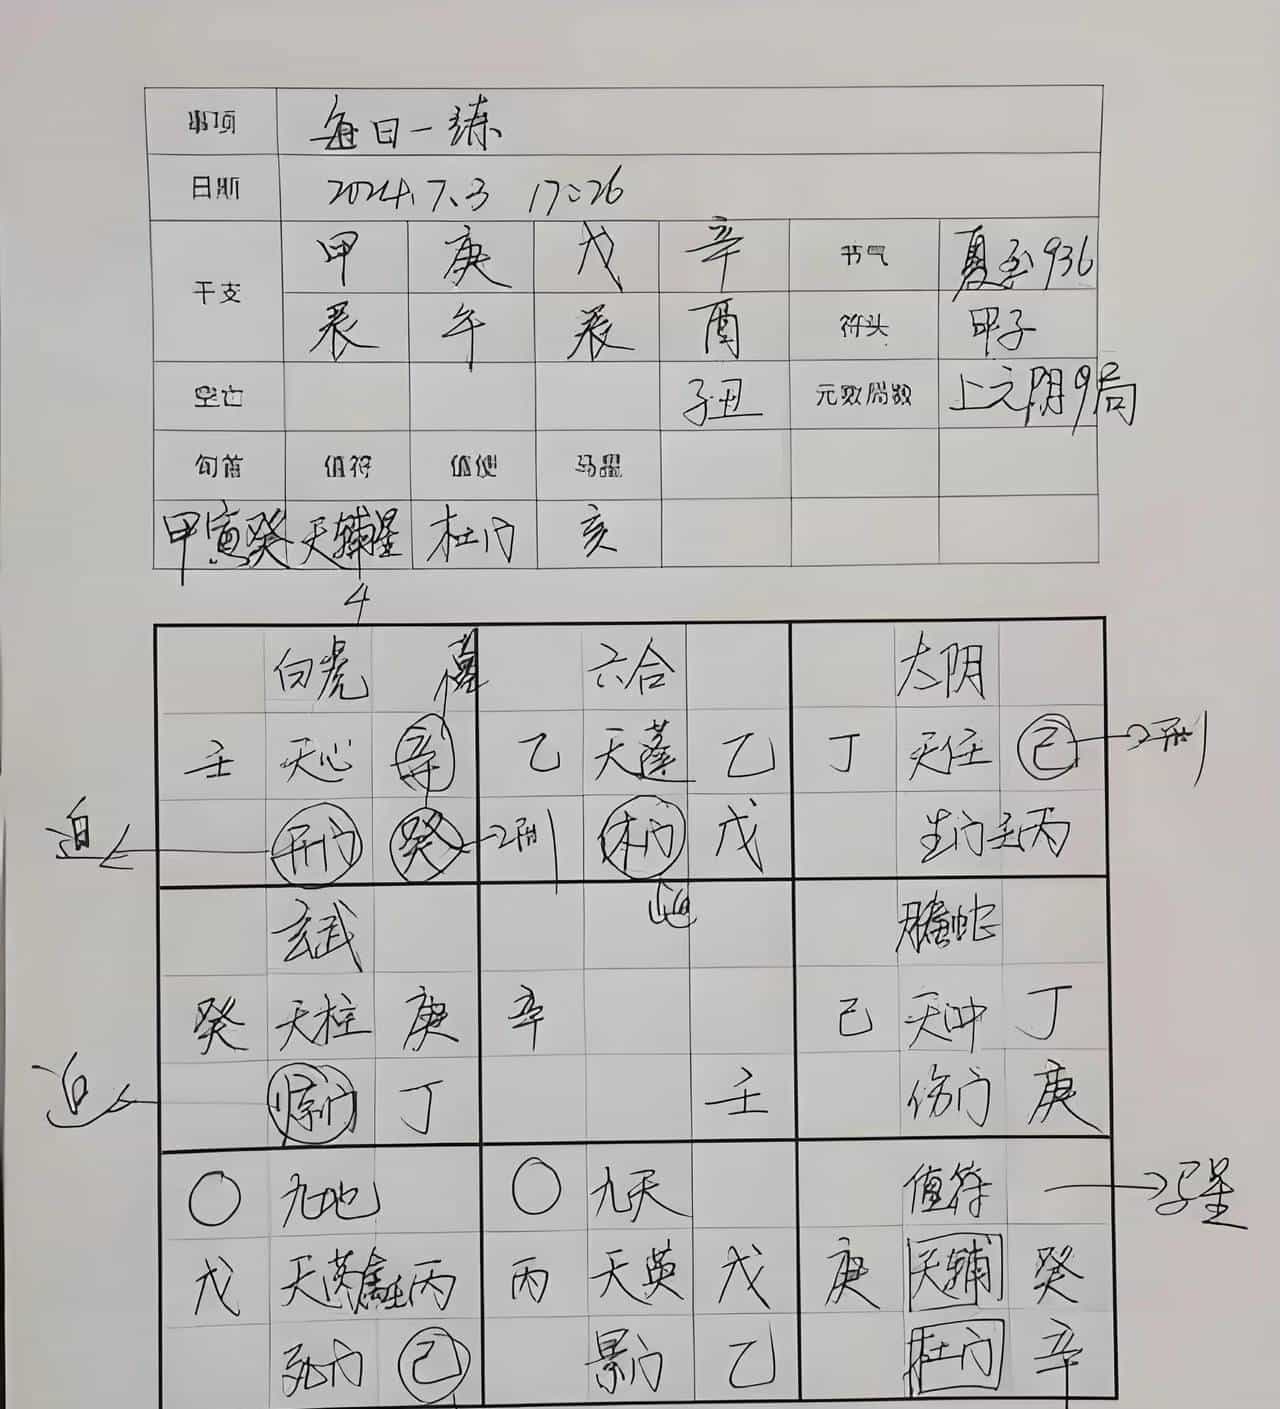 事项 每日一练
日期 2024.7.3 17:26
干支 甲 庚 戊 辛 节气 夏至936
辰 午 辰 酉 符头 甲子
空亡 子丑 元数局数 上元阴9局
旬首 值符 值使 马星
甲寅癸 天辅星 杜门 亥
4
白虎 六合 太阴
壬 天心 辛 乙 天蓬 乙 丁 天任 己 刑
迫 开门 癸 刑 休门 戊 生门 壬丙
迫
玄武 螣蛇
癸 天柱 庚 辛 己 天冲 丁
迫 惊门 丁 壬 伤门 庚
○ 九地 ○ 九天 值符
戊 天芮 丙 丙 天英 戊 庚 天辅 癸
死门 己 景门 乙 杜门 辛